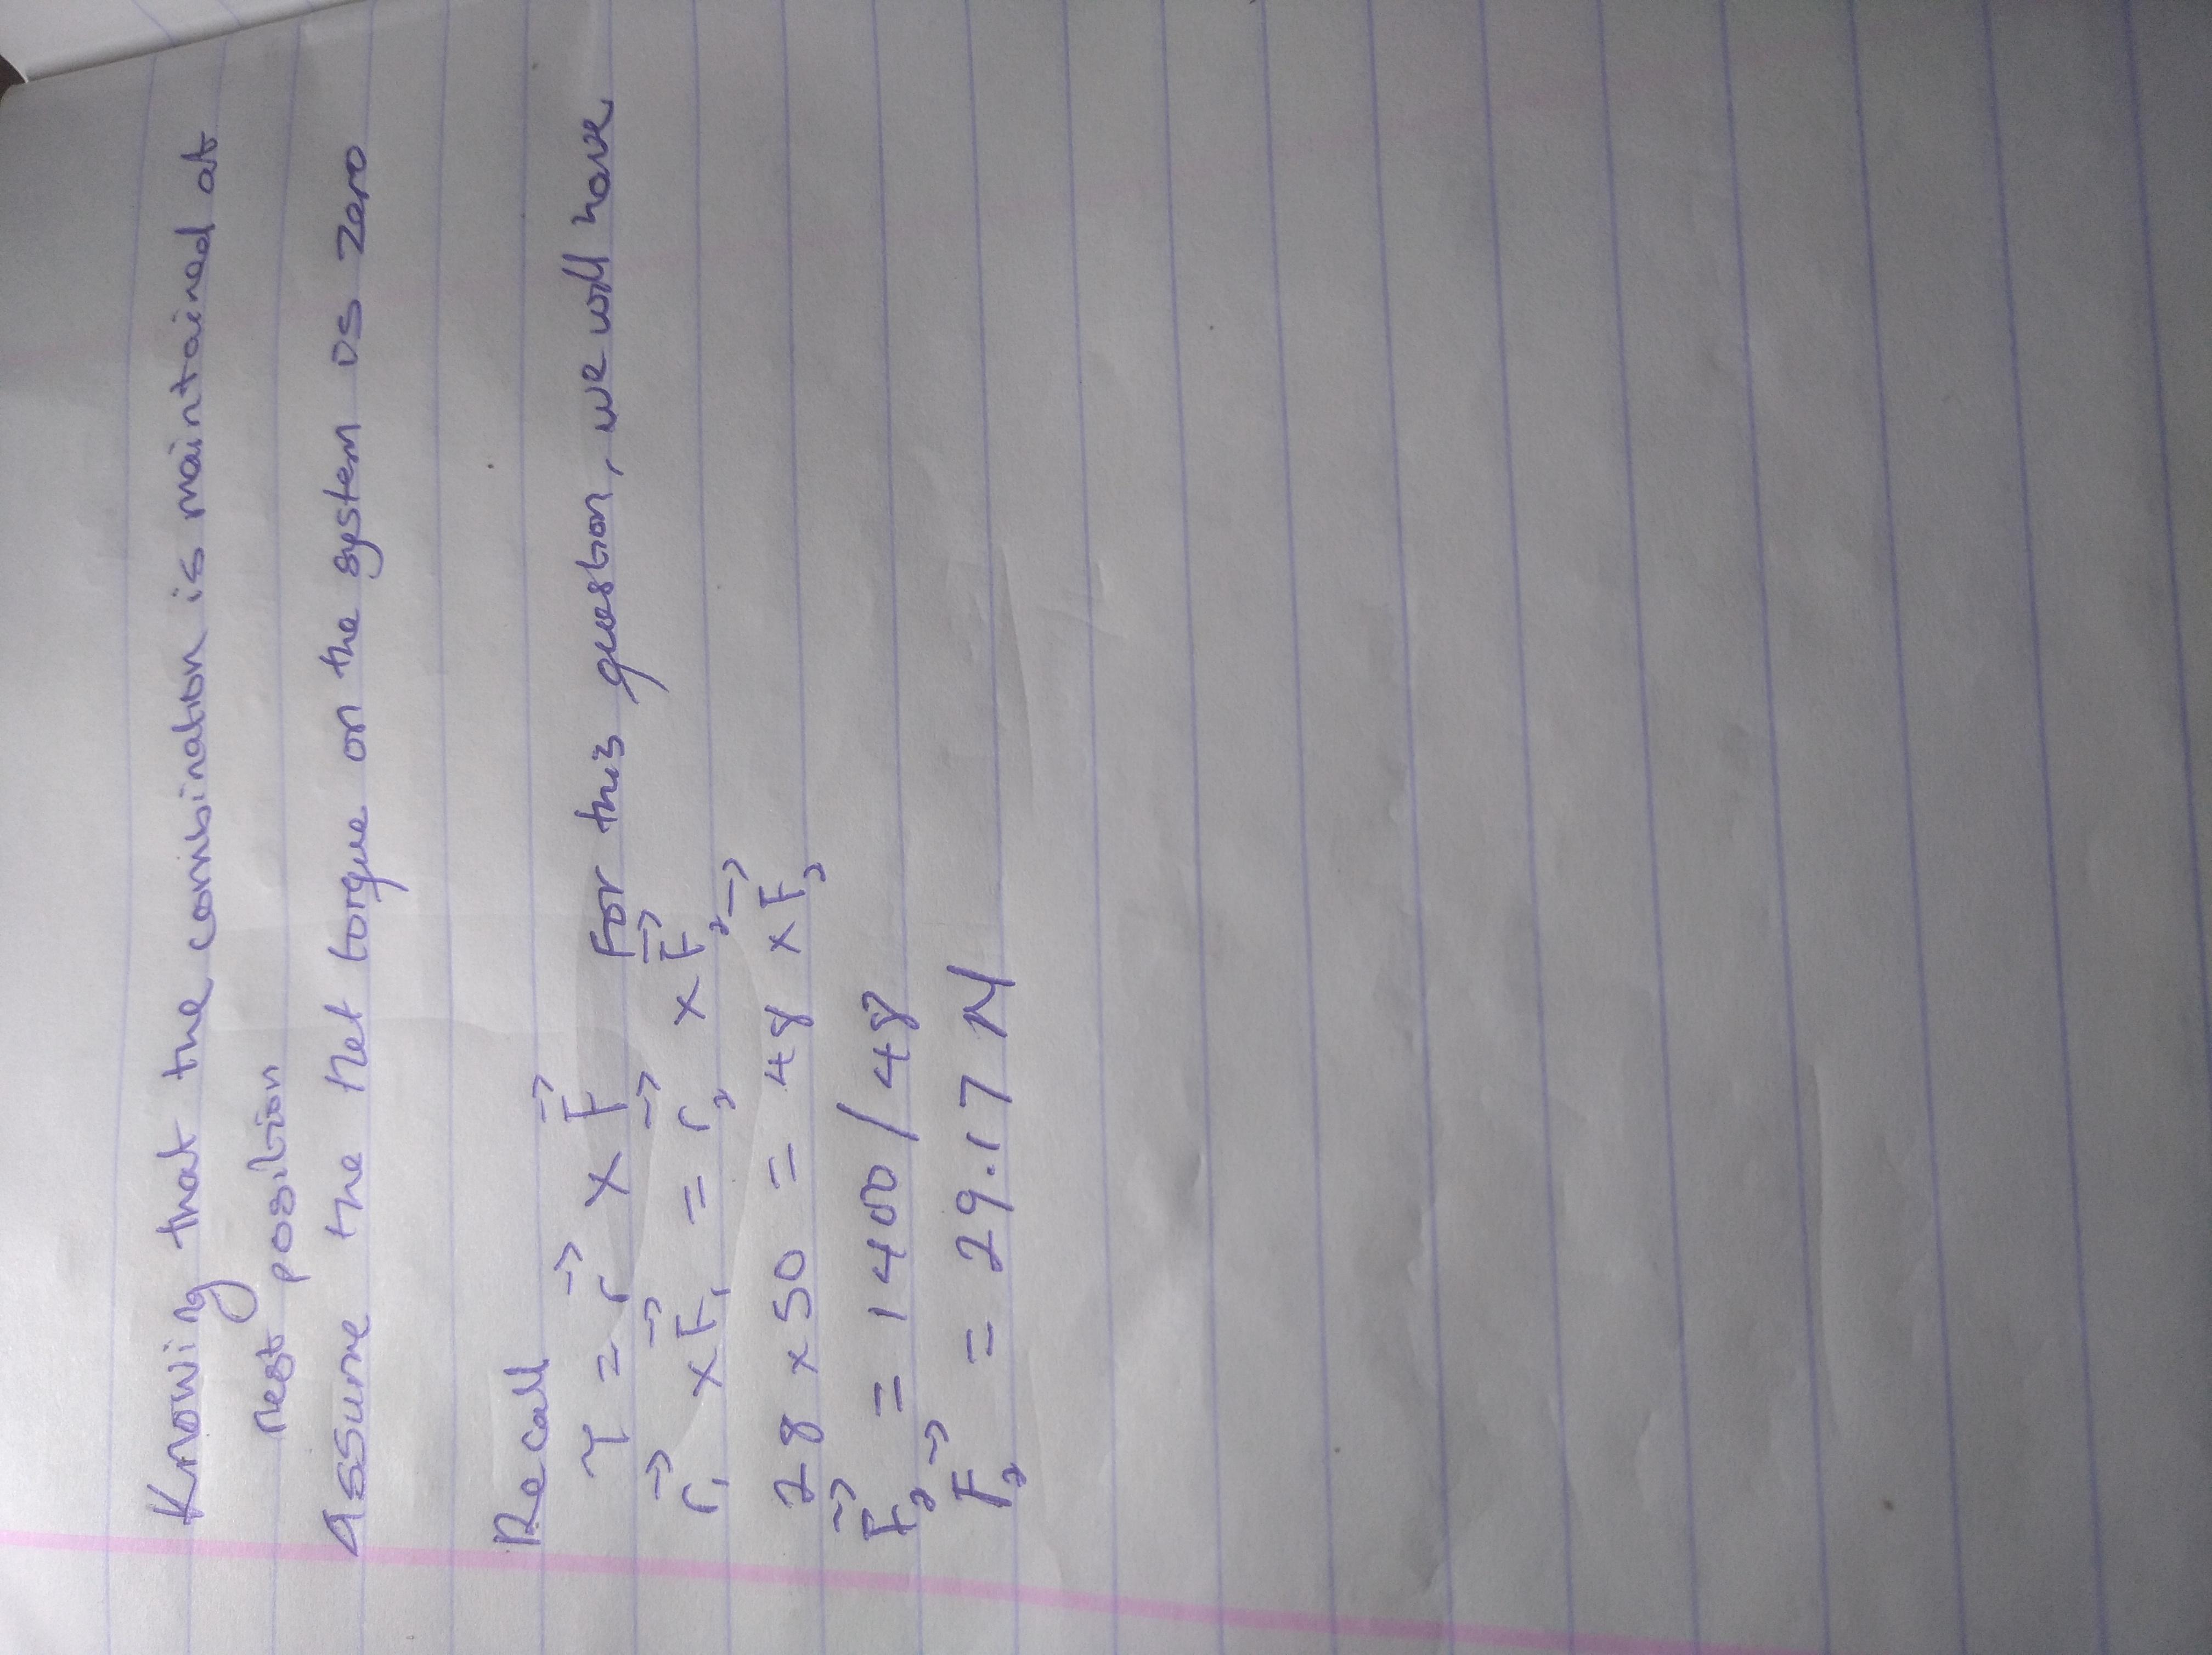 Knowing that the combination is maintained at
rest position
Assume the net torque on the system is zero
Recall
τ = r⃗ × F⃗ For this question, we will have
r⃗₁ × F⃗₁ = r⃗₂ × F⃗₂
28 × 50 = 48 × F⃗₂
F⃗₂ = 1400/48
F⃗₂ = 29.17 N